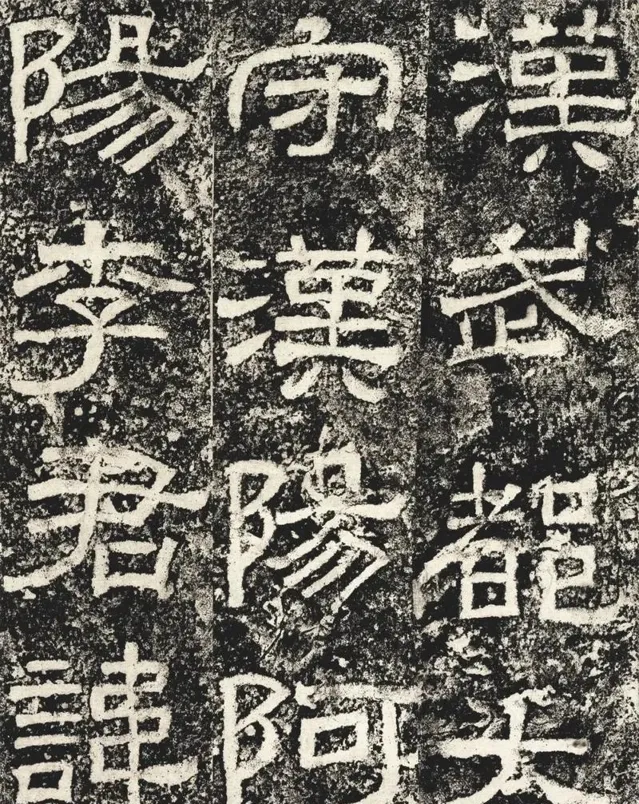 漢武都太
守漢陽阿
陽李君諱